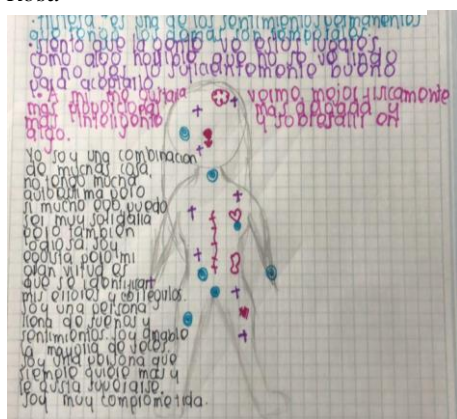 tristeza es uno de los sentimientos permanentes
que tengo los demas son temporales.
· siento que la gente ve estos lugares
como algo horrible que no se ve lindo
o no lo suficientemente bueno
para aceptarlo
· A mi me gustaria verme mejor fisicamente
mas superior mas delgada y
mas inteligente y sobresalir en
algo.
Yo soy una combinacion
de muchas cosa,
no tengo mucha
autoestima pero
si mucho ego puedo
ser muy solidaria
pero tambien
odiosa soy
egoista pero mi
gran virtud es
que se identificar
mis errores y corregirlos.
soy una persona
llena de sueños y
sentimientos soy amable
la mayoria de veces
soy una persona que
siempre quiere mas y
le gusta superarse.
soy muy comprometida.